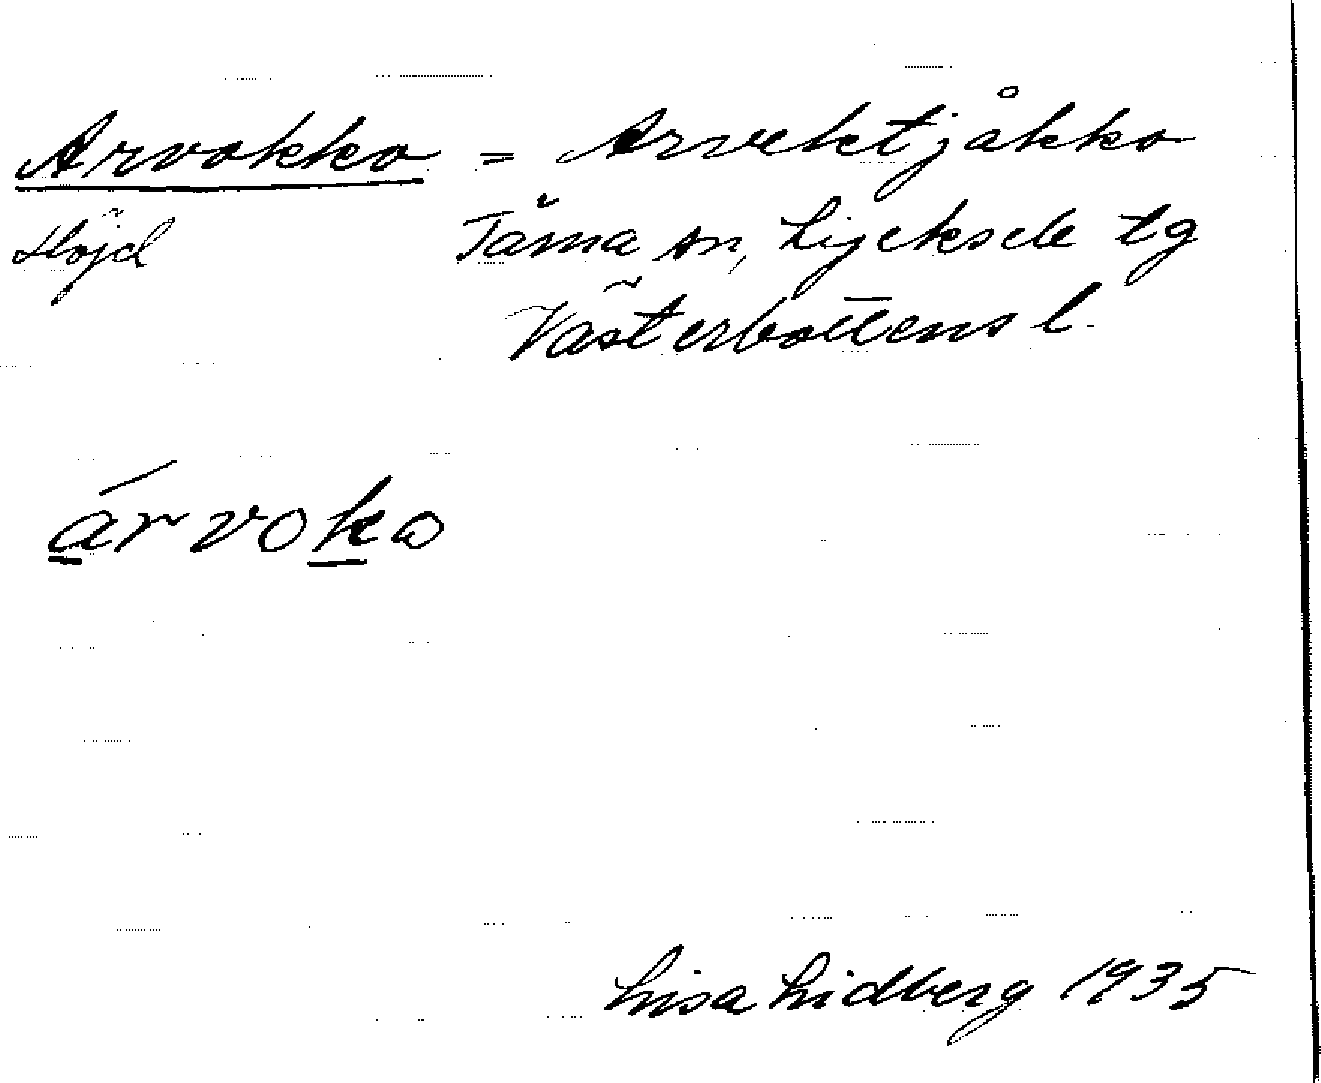 Arvokko = Arvektjåkko
Höjd Tärna sn, Lycksele lg
Västerbottens l.
árvoko
Lisa Lidberg 1935